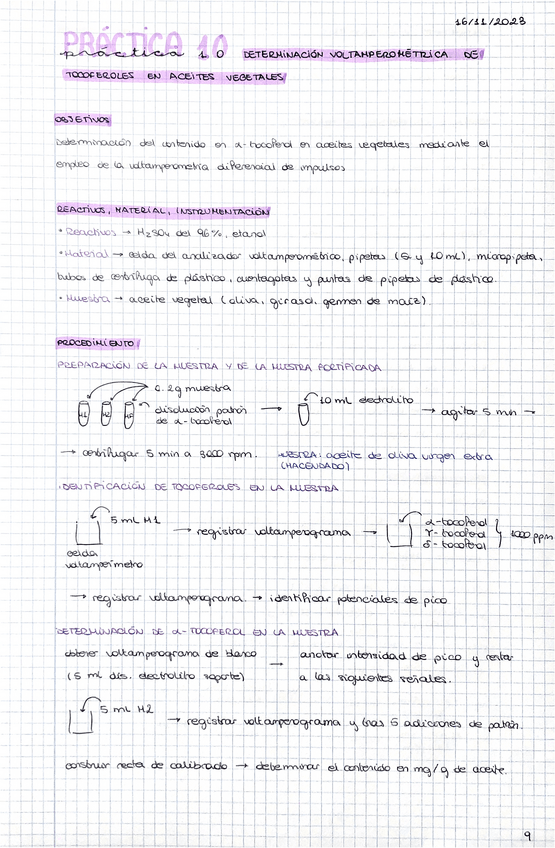 16/11/2023
PRÁCTICA 10
práctica 10 DETERMINACIÓN VOLTAMPEROMÉTRICA DE
TOCOFEROLES EN ACEITES VEGETALES
OBJETIVOS
Determinación del contenido en α-tocoferol en aceites vegetales mediante el
empleo de la voltamperometría diferencial de impulsos
REACTIVOS, MATERIAL, INSTRUMENTACIÓN
• Reactivos → H₂SO₄ del 96%, etanol
• Material → celda del analizador voltamperométrico, pipetas (5 y 10 mL), micropipeta,
tubos de centrífuga de plástico, cuentagotas y puntas de pipetas de plástico.
• Muestra → aceite vegetal (oliva, girasol, germen de maíz)
PROCEDIMIENTO
PREPARACIÓN DE LA MUESTRA Y DE LA MUESTRA FORTIFICADA
0.2g muestra
M1 M2 MF disolución patrón de α-tocoferol → 10 mL electrolito → agitar 5 min →
→ centrifugar 5 min a 3000 rpm. MUESTRA: aceite de oliva virgen extra
(HACENDADO)
IDENTIFICACIÓN DE TOCOFEROLES EN LA MUESTRA
5 mL M1 → registrar voltamperograma → α-tocoferol γ-tocoferol δ-tocoferol } 1000 ppm
celda
voltamperímetro
→ registrar voltamperograma. → identificar potenciales de pico
DETERMINACIÓN DE α-TOCOFEROL EN LA MUESTRA
obtener voltamperograma de blanco → anotar intensidad de pico y restar
(5 mL dis. electrolito soporte) a las siguientes señales.
5 mL M2 → registrar voltamperograma y tras 5 adiciones de patrón.
construir recta de calibrado → determinar el contenido en mg/g de aceite.
9